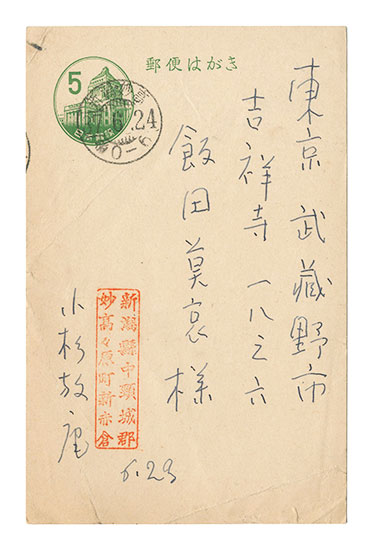 郵便はがき
5
24
東京 武蔵野市
吉祥寺 一八三六
飯田莫哀様
新潟縣中頸城郡
妙高々原町新赤倉
小杉放庵
6.23